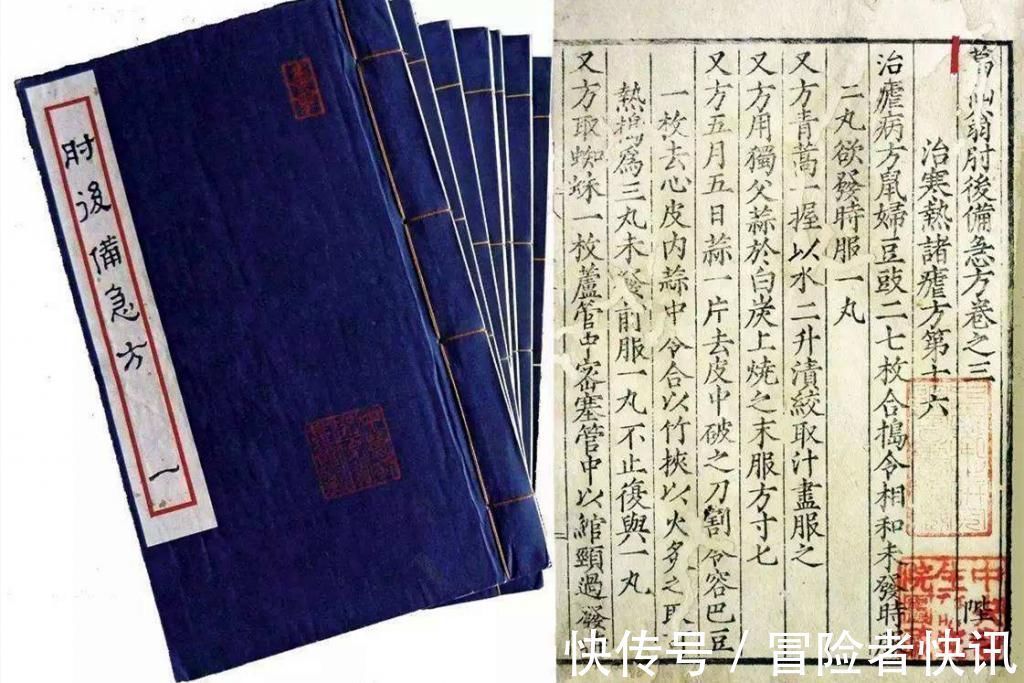 肘後備急方 一
葛仙翁肘後備急方卷之三
治寒熱諸瘧方第十六
治瘧病方鼠婦豆豉二七枚合搗令相和未發時
二丸欲發時服一丸
又方青蒿一握以水二升漬絞取汁盡服之
又方用獨父蒜於白炭上燒之末服方寸匕
又方五月五日蒜一片去皮中破之刀割令容巴豆
一枚去心皮內蒜中令合以竹挾以火炙之取
熱搗爲三丸未發前服一丸不止復與一丸
又方取蜘蛛一枚蘆管中密塞管中以綰頸過發
快传号 / 冒险者快讯